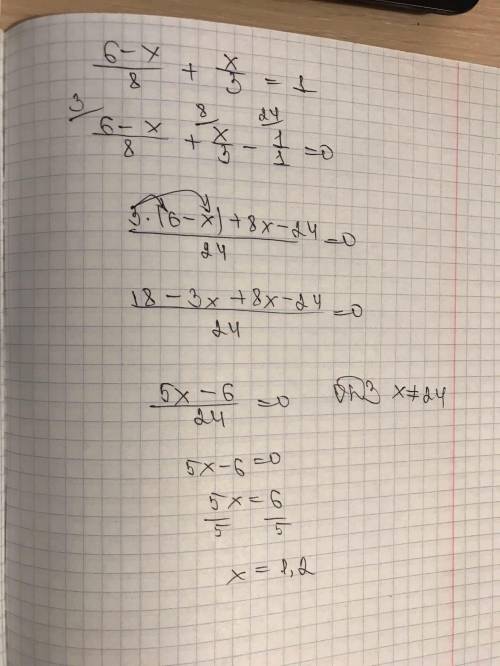 (6-x)/8 + x/3 = 1
3/ (6-x)/8 + 8/ x/3 - 24/ 1/1 = 0
(3·(6-x)+8x-24)/24 = 0
(18-3x+8x-24)/24 = 0
(5x-6)/24 = 0 ОДЗ x≠24
5x-6=0
5x/5 = 6/5
x = 1,2